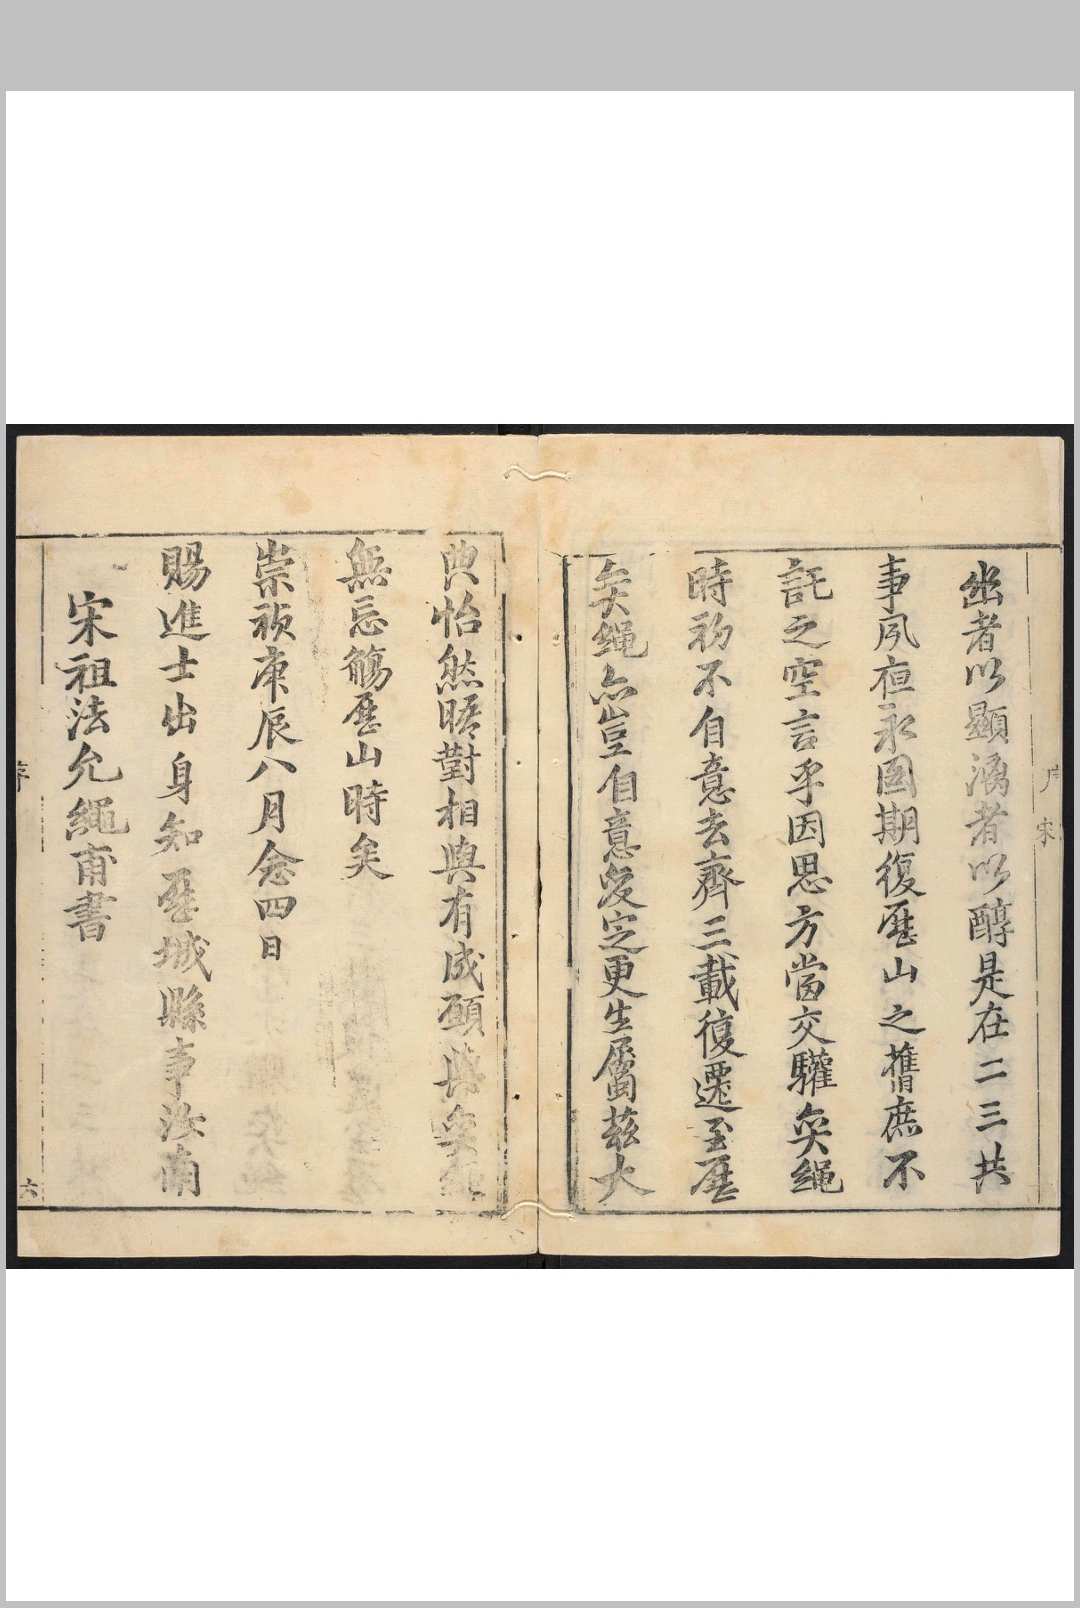 序 宋
幽者以顯漓者以醇是在二三共
事夙夜永圖期復歷山之舊庶不
託之空言乎因思方當交驩奕繩
時初不自意去齊三載復遷至歷
奕繩亦豈自意定更生屬茲大
典怡然晤對相與有成願與奕繩
無忘觴歷山時矣
崇禎庚辰八月念四日
賜進士出身知歷城縣事汝南
宋祖法允繩甫書
序 六